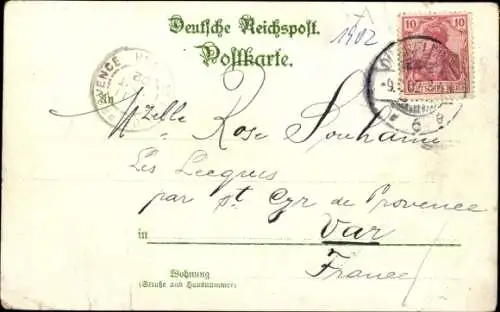 Deutsche Reichspost.
Postkarte.
1902
10 10
PROVENCE
02
An
Mzelle Rose
Les Lecques
par St Cyr de Provence
in Var
France
6 e
Wohnung
(Straße und Hausnummer)